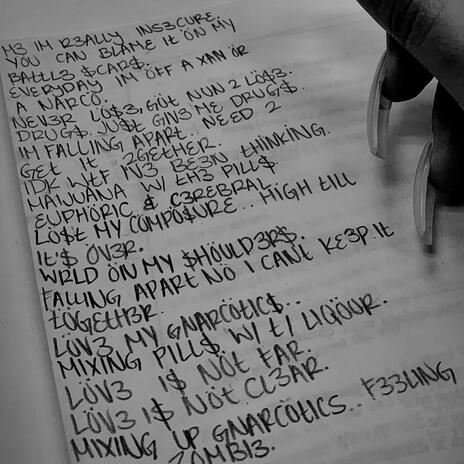 M3 IM R3ALLY INS3CURE.
YOU CAN BLAME IT ON MY
BATTL3 $CAR$.
EVERYDAY IM ÖFF A XAN ÖR
A NARCÖ.
NEV3R LÖ$3, GÖT NUN 2 LÖ$3.
DRUG$. JU$T GIV3 ME DRUG$.
IM FALLING APART.. NEED 2
GET IT 2GETHER.
IDK WTF IV3 BE3N THINKING.
MAIJUANA W/ TH3 PILL$
EUPHÖRIC & C3REBRAL.
LÖ$T MY CÖMPÖ$URE.. HIGH TILL
IT'$ ÖV3R.
WRLD ÖN MY $HÖULD3R$.
FALLING APART NÖ I CANT KE3P IT
TÖGETH3R.
LÖV3 MY GNARCÖTIC$..
MIXING PILL$ W/ T/ LIQÖUR.
LÖV3 I$ NÖT FAR.
LÖV3 I$ NÖT CL3AR.
MIXING UP GNARCÖTICS.. F33LING
ZÖMBI3.